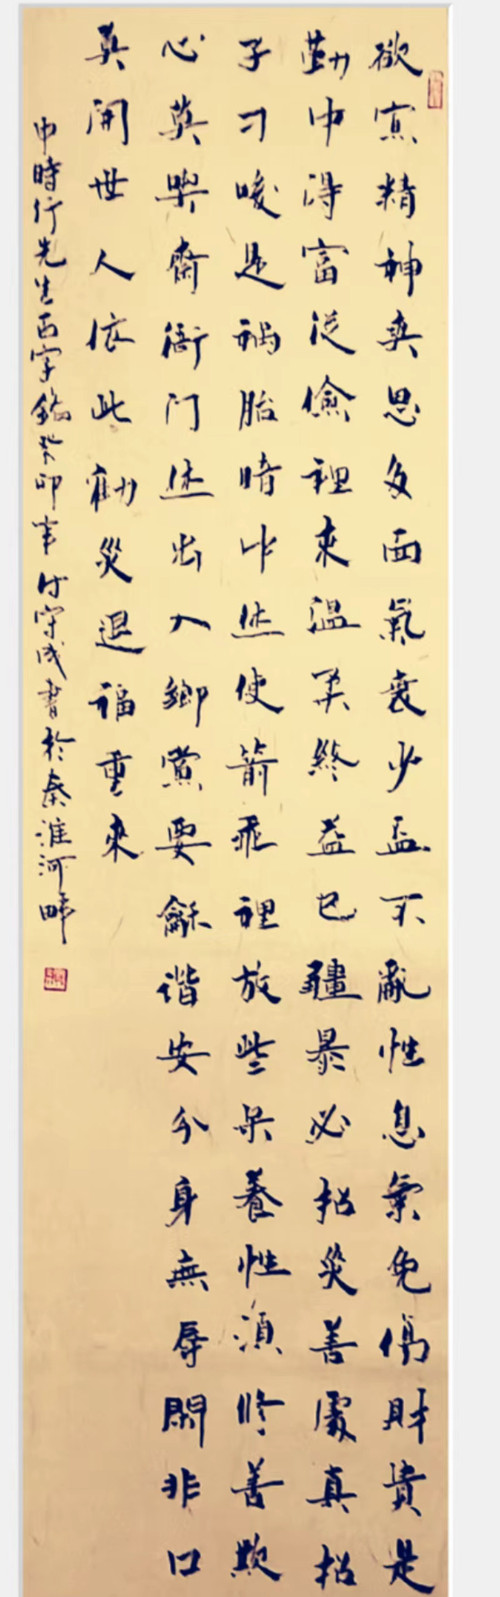 欲寡精神爽思多血氣衰少盃不亂性忍氣免傷財貴是
勤中得富從儉裡來溫柔終益己彊暴必招災善處真招
子刁唆是禍胎暗中休使箭乖裡放些呆養性須修善欺
心莫喫齋衙門休出入鄉黨要龢谐安分身無辱閒非口
莫開世人依此勸災退福重來
申時行先生百字銘癸卯年付守成書於秦淮河畔